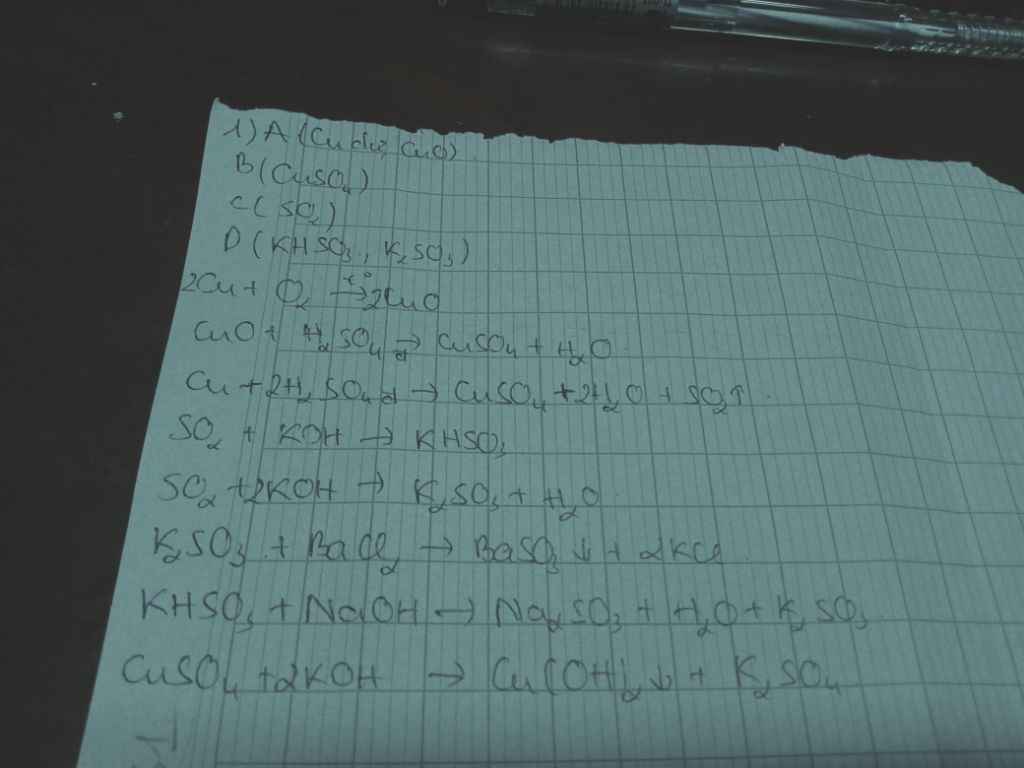 1) A (Cu dư, CuO)
B (CuSO₄)
C (SO₂)
D (KHSO₃, K₂SO₃)
2Cu + O₂ –t°→ 2CuO
CuO + H₂SO₄đ → CuSO₄ + H₂O
Cu + 2H₂SO₄đ → CuSO₄ + 2H₂O + SO₂↑.
SO₂ + KOH → KHSO₃
SO₂ + 2KOH → K₂SO₃ + H₂O.
K₂SO₃ + BaCl₂ → BaSO₃↓ + 2KCl
KHSO₃ + NaOH → Na₂SO₃ + H₂O + K₂SO₃
CuSO₄ + 2KOH → Cu(OH)₂↓ + K₂SO₄